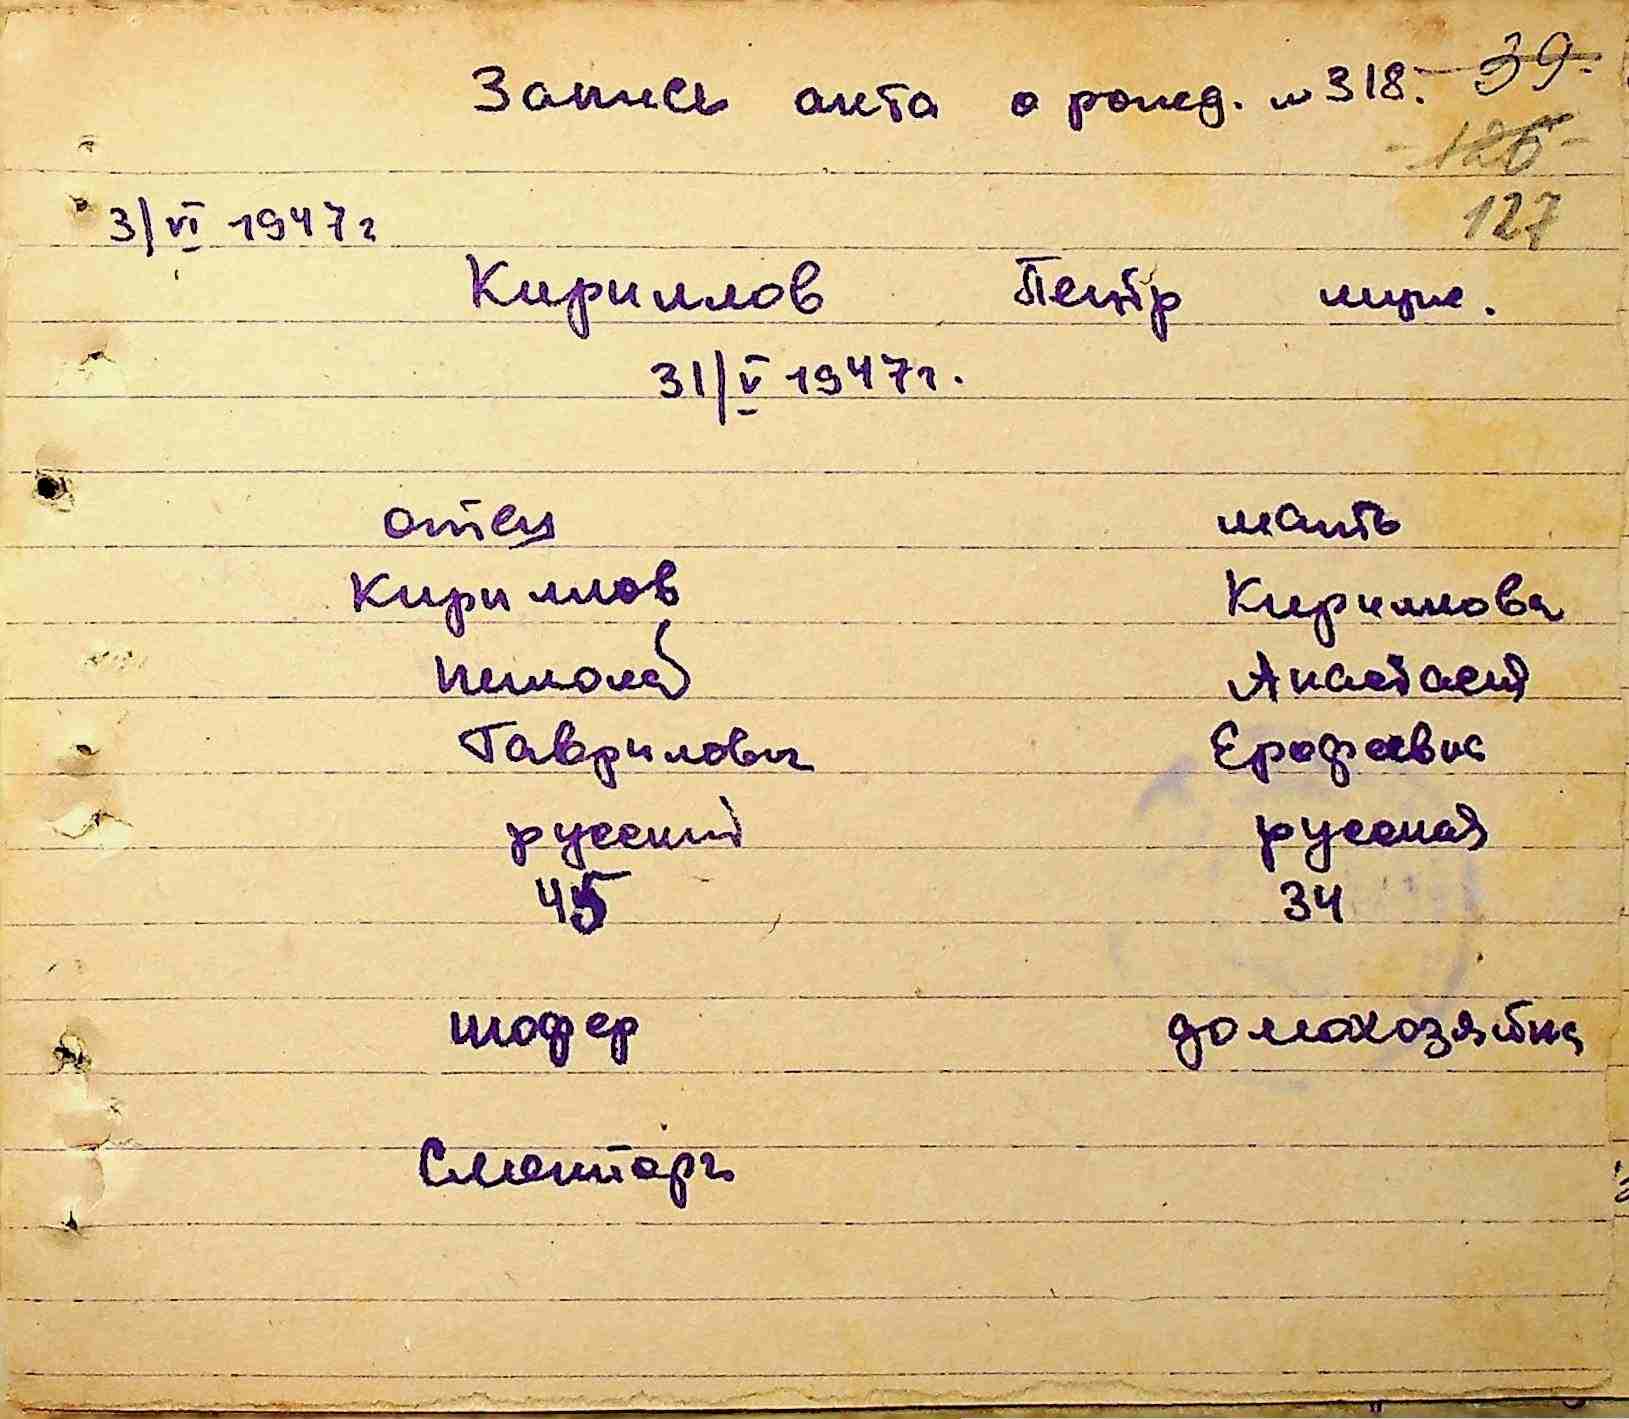 Запись акта о рожд. № 318. 39
126
127
3/VI 1947г
Кириллов Петр муж.
31/V 1947г.
отец мать
Кириллов Кириллова
Николай Анастасия
Гаврилович Ерофеевна
русский русская
45 34
шофер домохозяйка
Смешторг